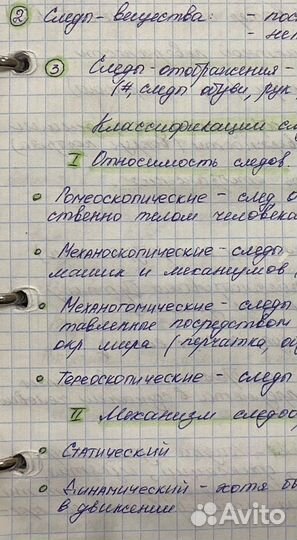 ② Следы-вещества: - пос
- нел
③ Следы-отображения -
(#, следы обуви, рук
Классификации сл
I Относимость следов.
• Гомеоскопические - след о
ственно телом человека
• Механоскопические - следы
машин и механизмов (
• Механогомические - следы
тавленные посредством
окр. мира (перчатка, о
• Тереоскопические - следы
II Механизм следо
• Статический
• Динамический - хотя бы
в движении
Avito